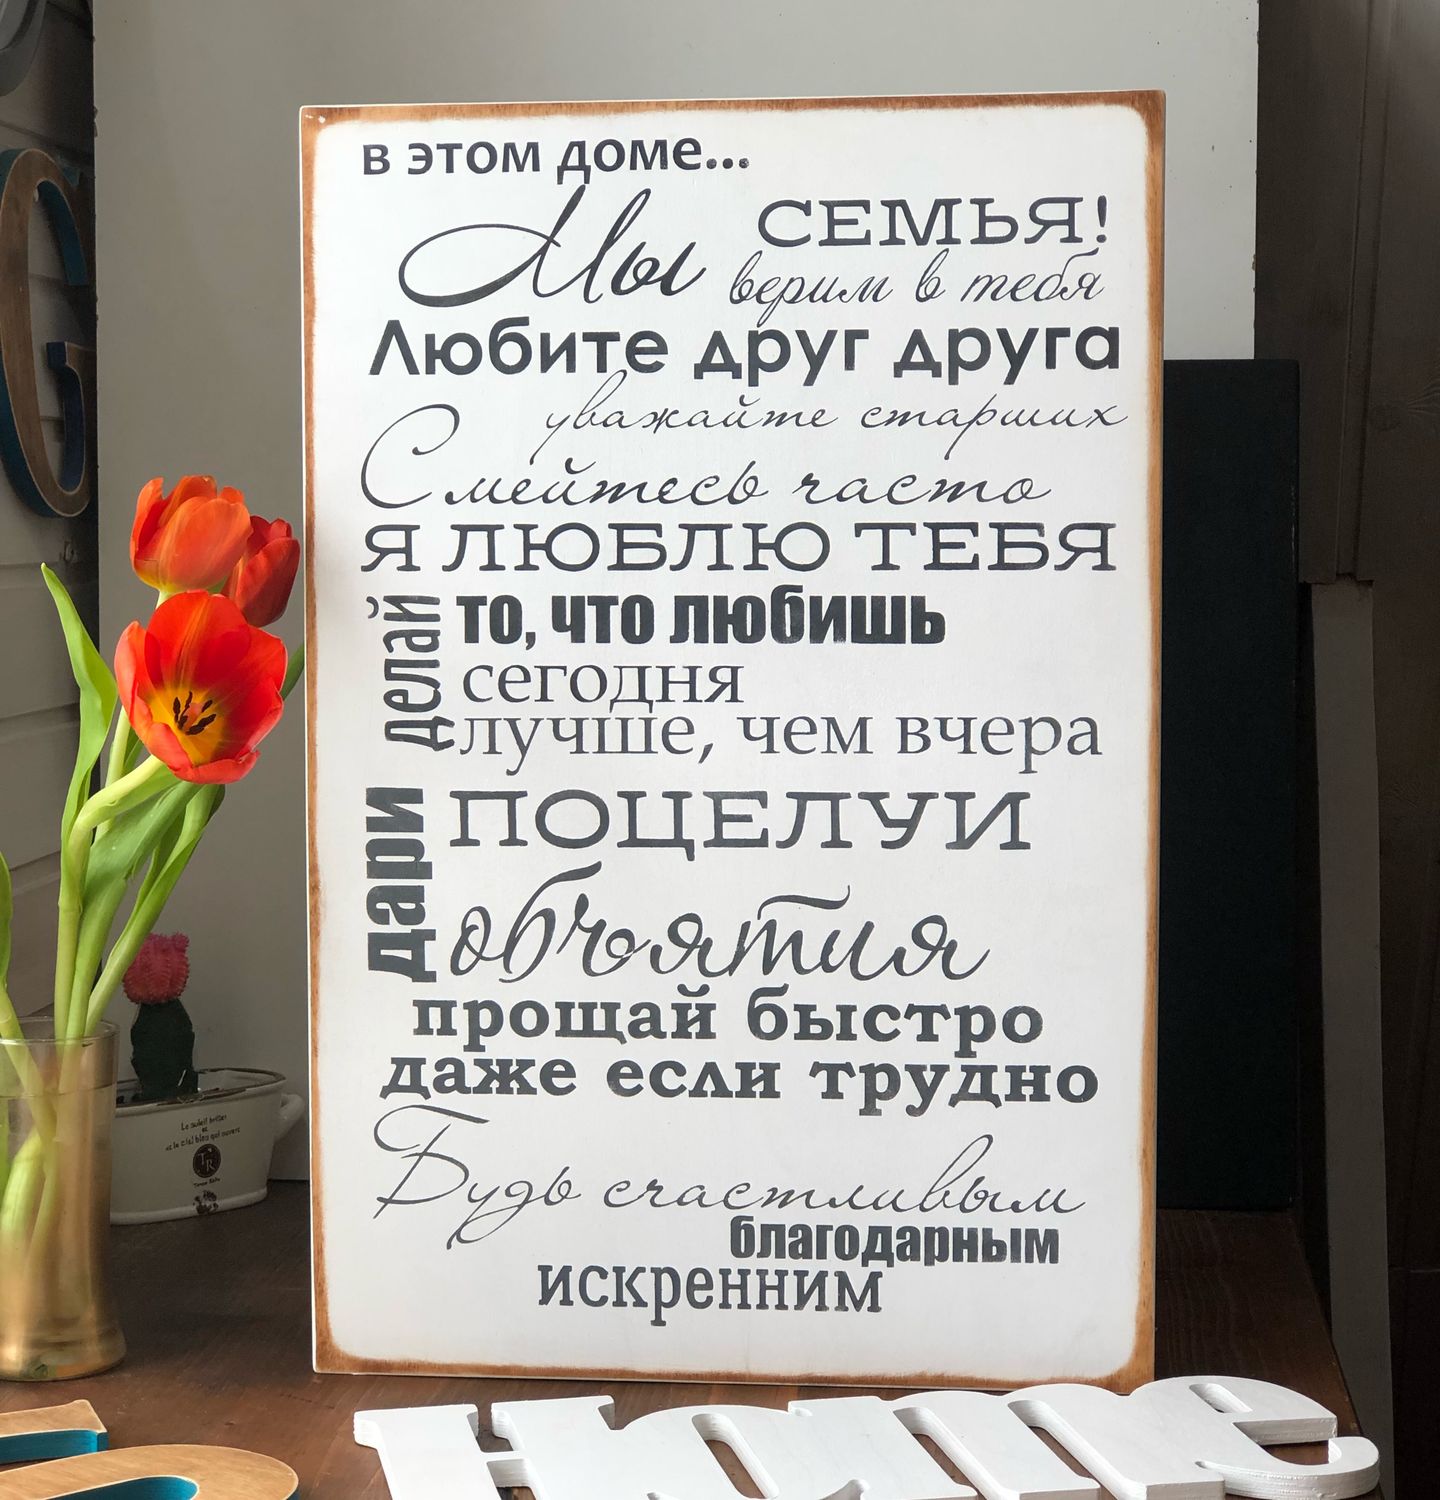 в этом доме...
Мы СЕМЬЯ!
верим в тебя
Любите друг друга
уважайте старших
Смейтесь часто
Я ЛЮБЛЮ ТЕБЯ
делай то, что любишь
сегодня
лучше, чем вчера
дари ПОЦЕЛУИ
объятия
прощай быстро
даже если трудно
Будь счастливым
благодарным
искренним
Le soleil brille
et le ciel bleu qui ouvert
TR
Home
G